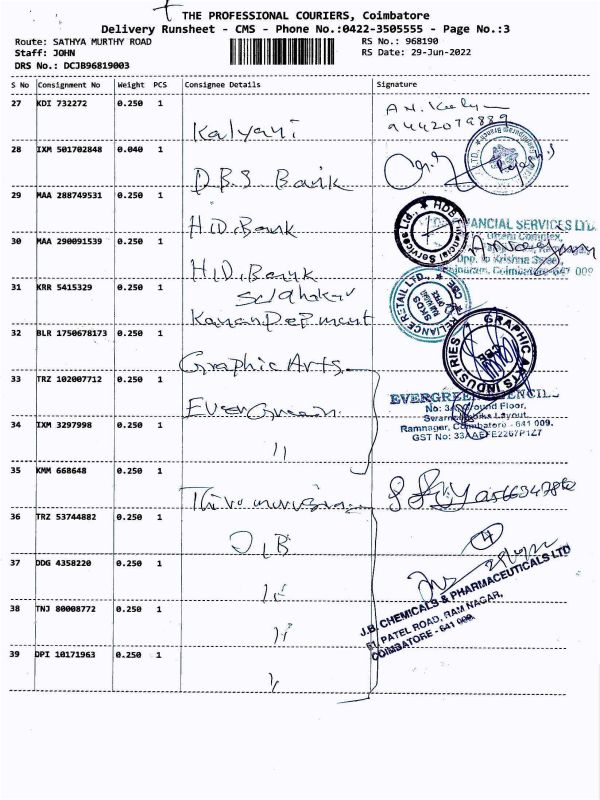 THE PROFESSIONAL COURIERS, Coimbatore
Delivery Runsheet - CMS - Phone No.:0422-3505555 - Page No.:3
Route: SATHYA MURTHY ROAD
RS No.: 968190
Staff: JOHN
RS Date: 29-Jun-2022
DRS No.: DCJB96819003
S No Consignment No Weight PCS Consignee Details Signature
27 KDI 732272 0.250 1
Kalyani
9442079889
28 IXM 501702848 0.040 1
D.B.S Bank
29 MAA 288749531 0.250 1
H.D. Bank
HDB Financial Services Ltd.
FINANCIAL SERVICES LTD.
30 MAA 290091539 0.250 1
H.D. Bank
31 KRR 5415329 0.250 1
RELIANCE RETAIL LTD.
SKDS
32 BLR 1750678173 0.250 1
Graphic Arts
GRAPHIC ARTS INDUSTRIES
CBE
33 TRZ 102007712 0.250 1
Evergreen
Ground Floor,
Ramnagar, Coimbatore - 641 009.
GST No: 33AAEFE2267P1Z7
34 IXM 3297998 0.250 1
"
35 KMM 668648 0.250 1
36 TRZ 53744882 0.250 1
J.B
4
37 DDG 4358220 0.250 1
"
J.B. CHEMICALS & PHARMACEUTICALS LTD
PATEL ROAD, RAM NAGAR,
COIMBATORE - 641 009.
38 TNJ 80008772 0.250 1
"
39 DPI 10171963 0.250 1
"